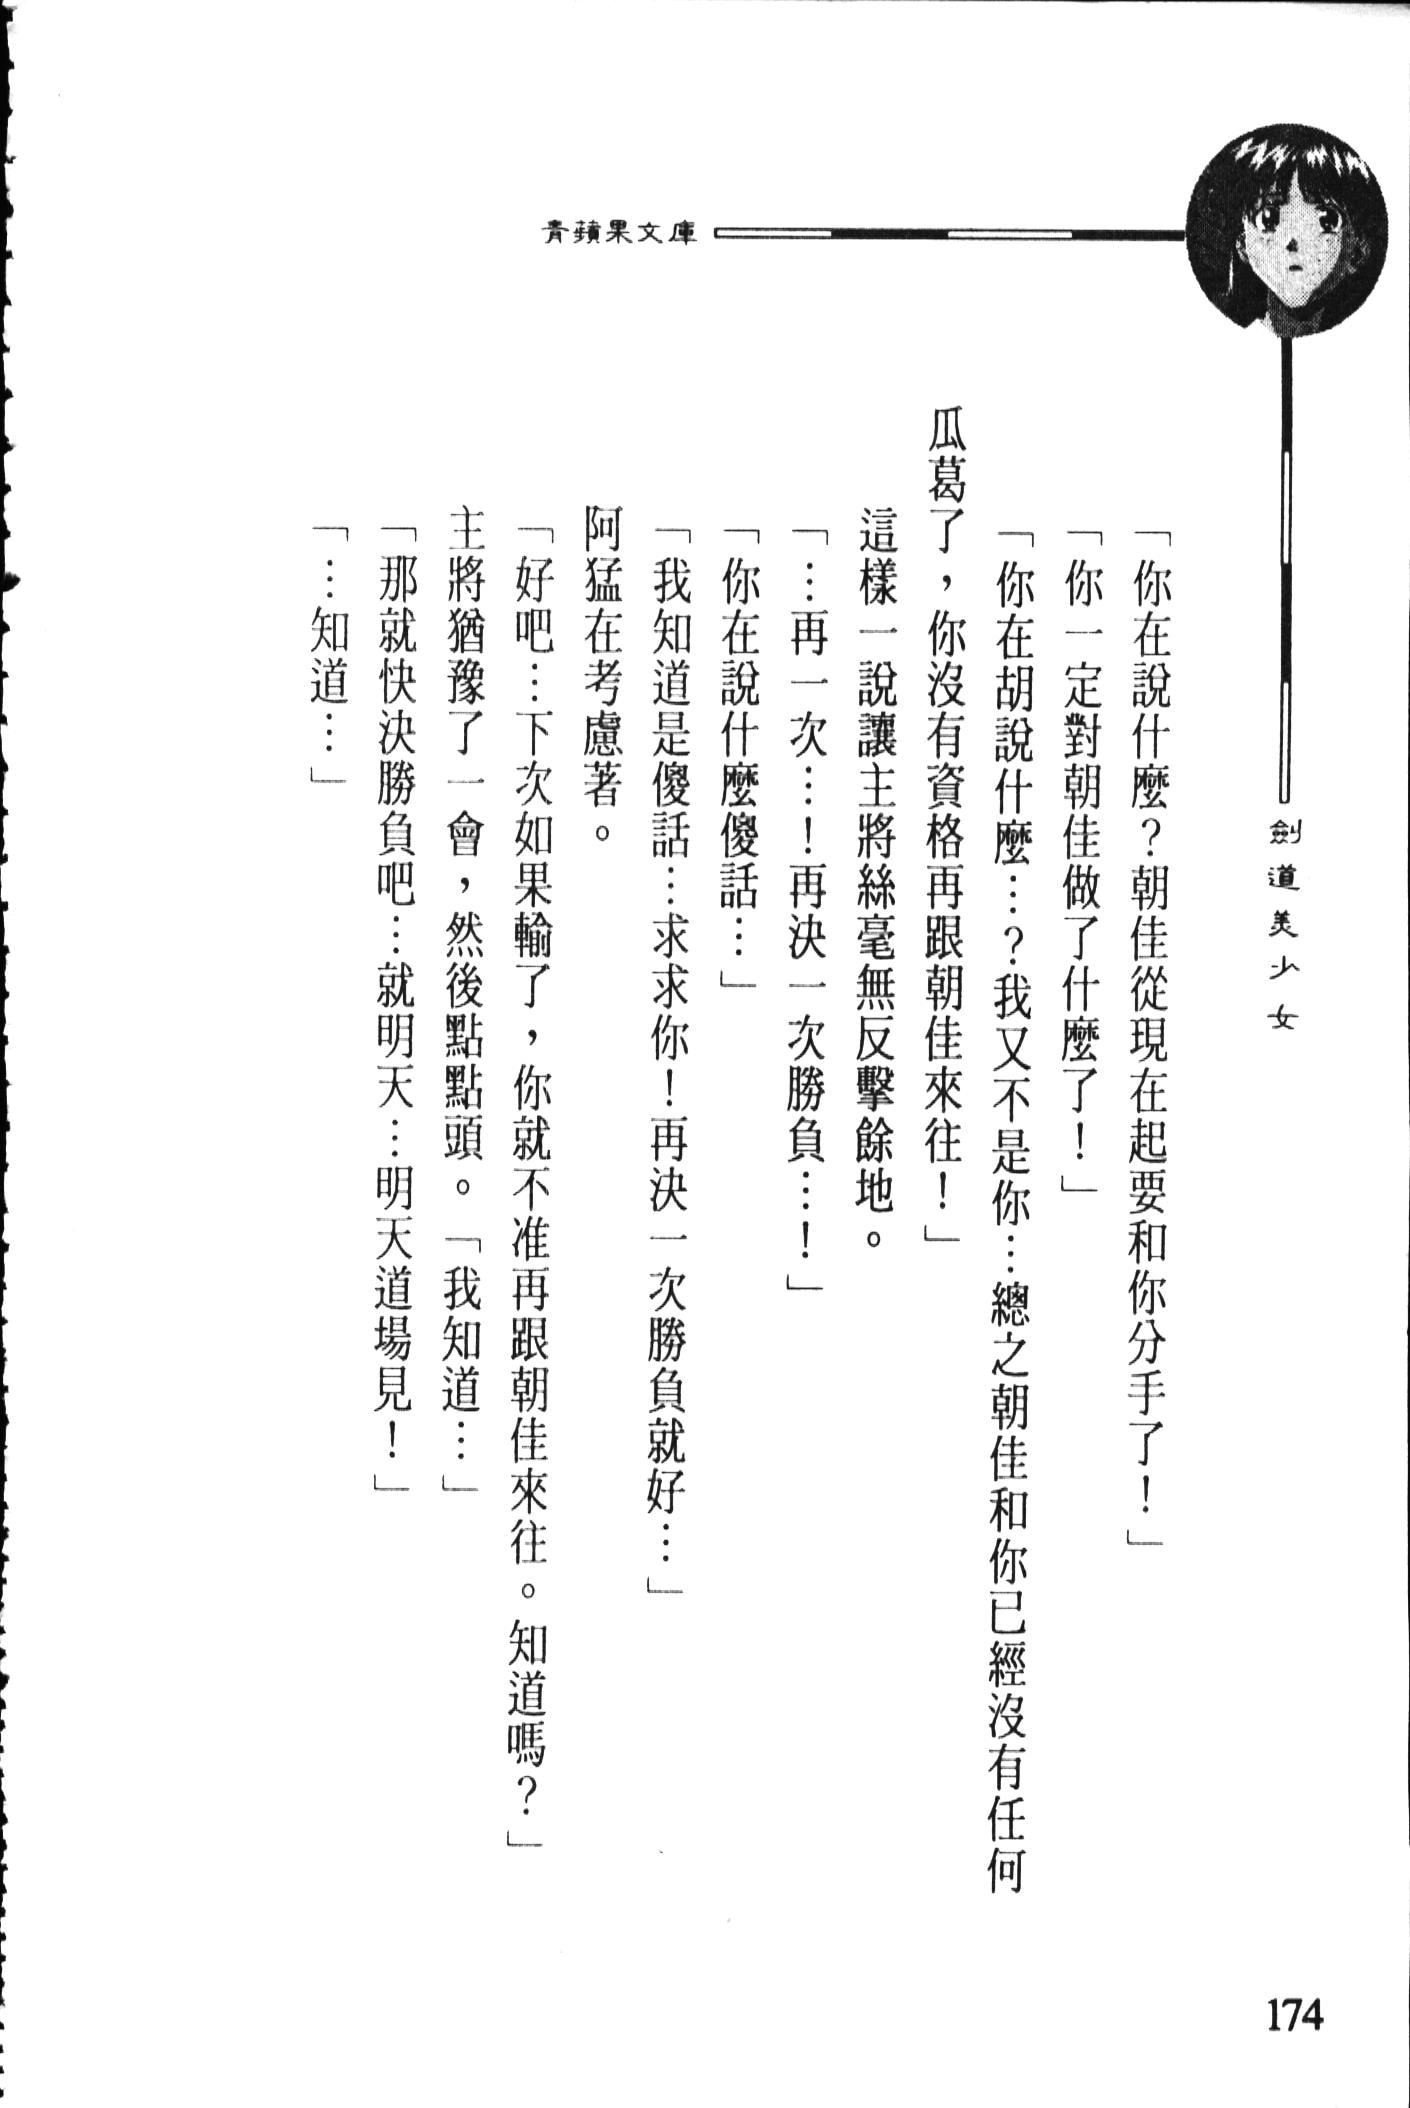 青蘋果文庫
劍道美少女
「你在說什麼？朝佳從現在起要和你分手了！」
「你一定對朝佳做了什麼了！」
「你在胡說什麼…？我又不是你…總之朝佳和你已經沒有任何
瓜葛了，你沒有資格再跟朝佳來往！」
這樣一說讓主將絲毫無反擊餘地。
「…再一次…！再決一次勝負…！」
「你在說什麼傻話…」
「我知道是傻話…求求你！再決一次勝負就好…」
阿猛在考慮著。
「好吧…下次如果輸了，你就不准再跟朝佳來往。知道嗎？」
主將猶豫了一會，然後點點頭。「我知道…」
「那就快決勝負吧…就明天…明天道場見！」
「…知道…」
174